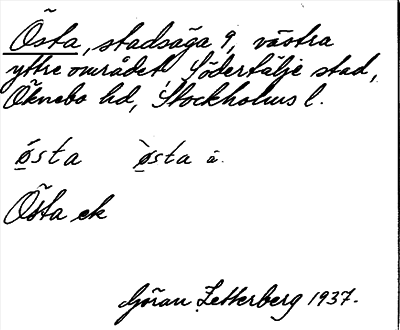 Östa, stadsäga 9, västra
yttre området, Södertälje stad,
Öknebo hd, Stockholms l.
ǿsta ø̀sta å.
Östa ek
Göran Zetterberg 1937.